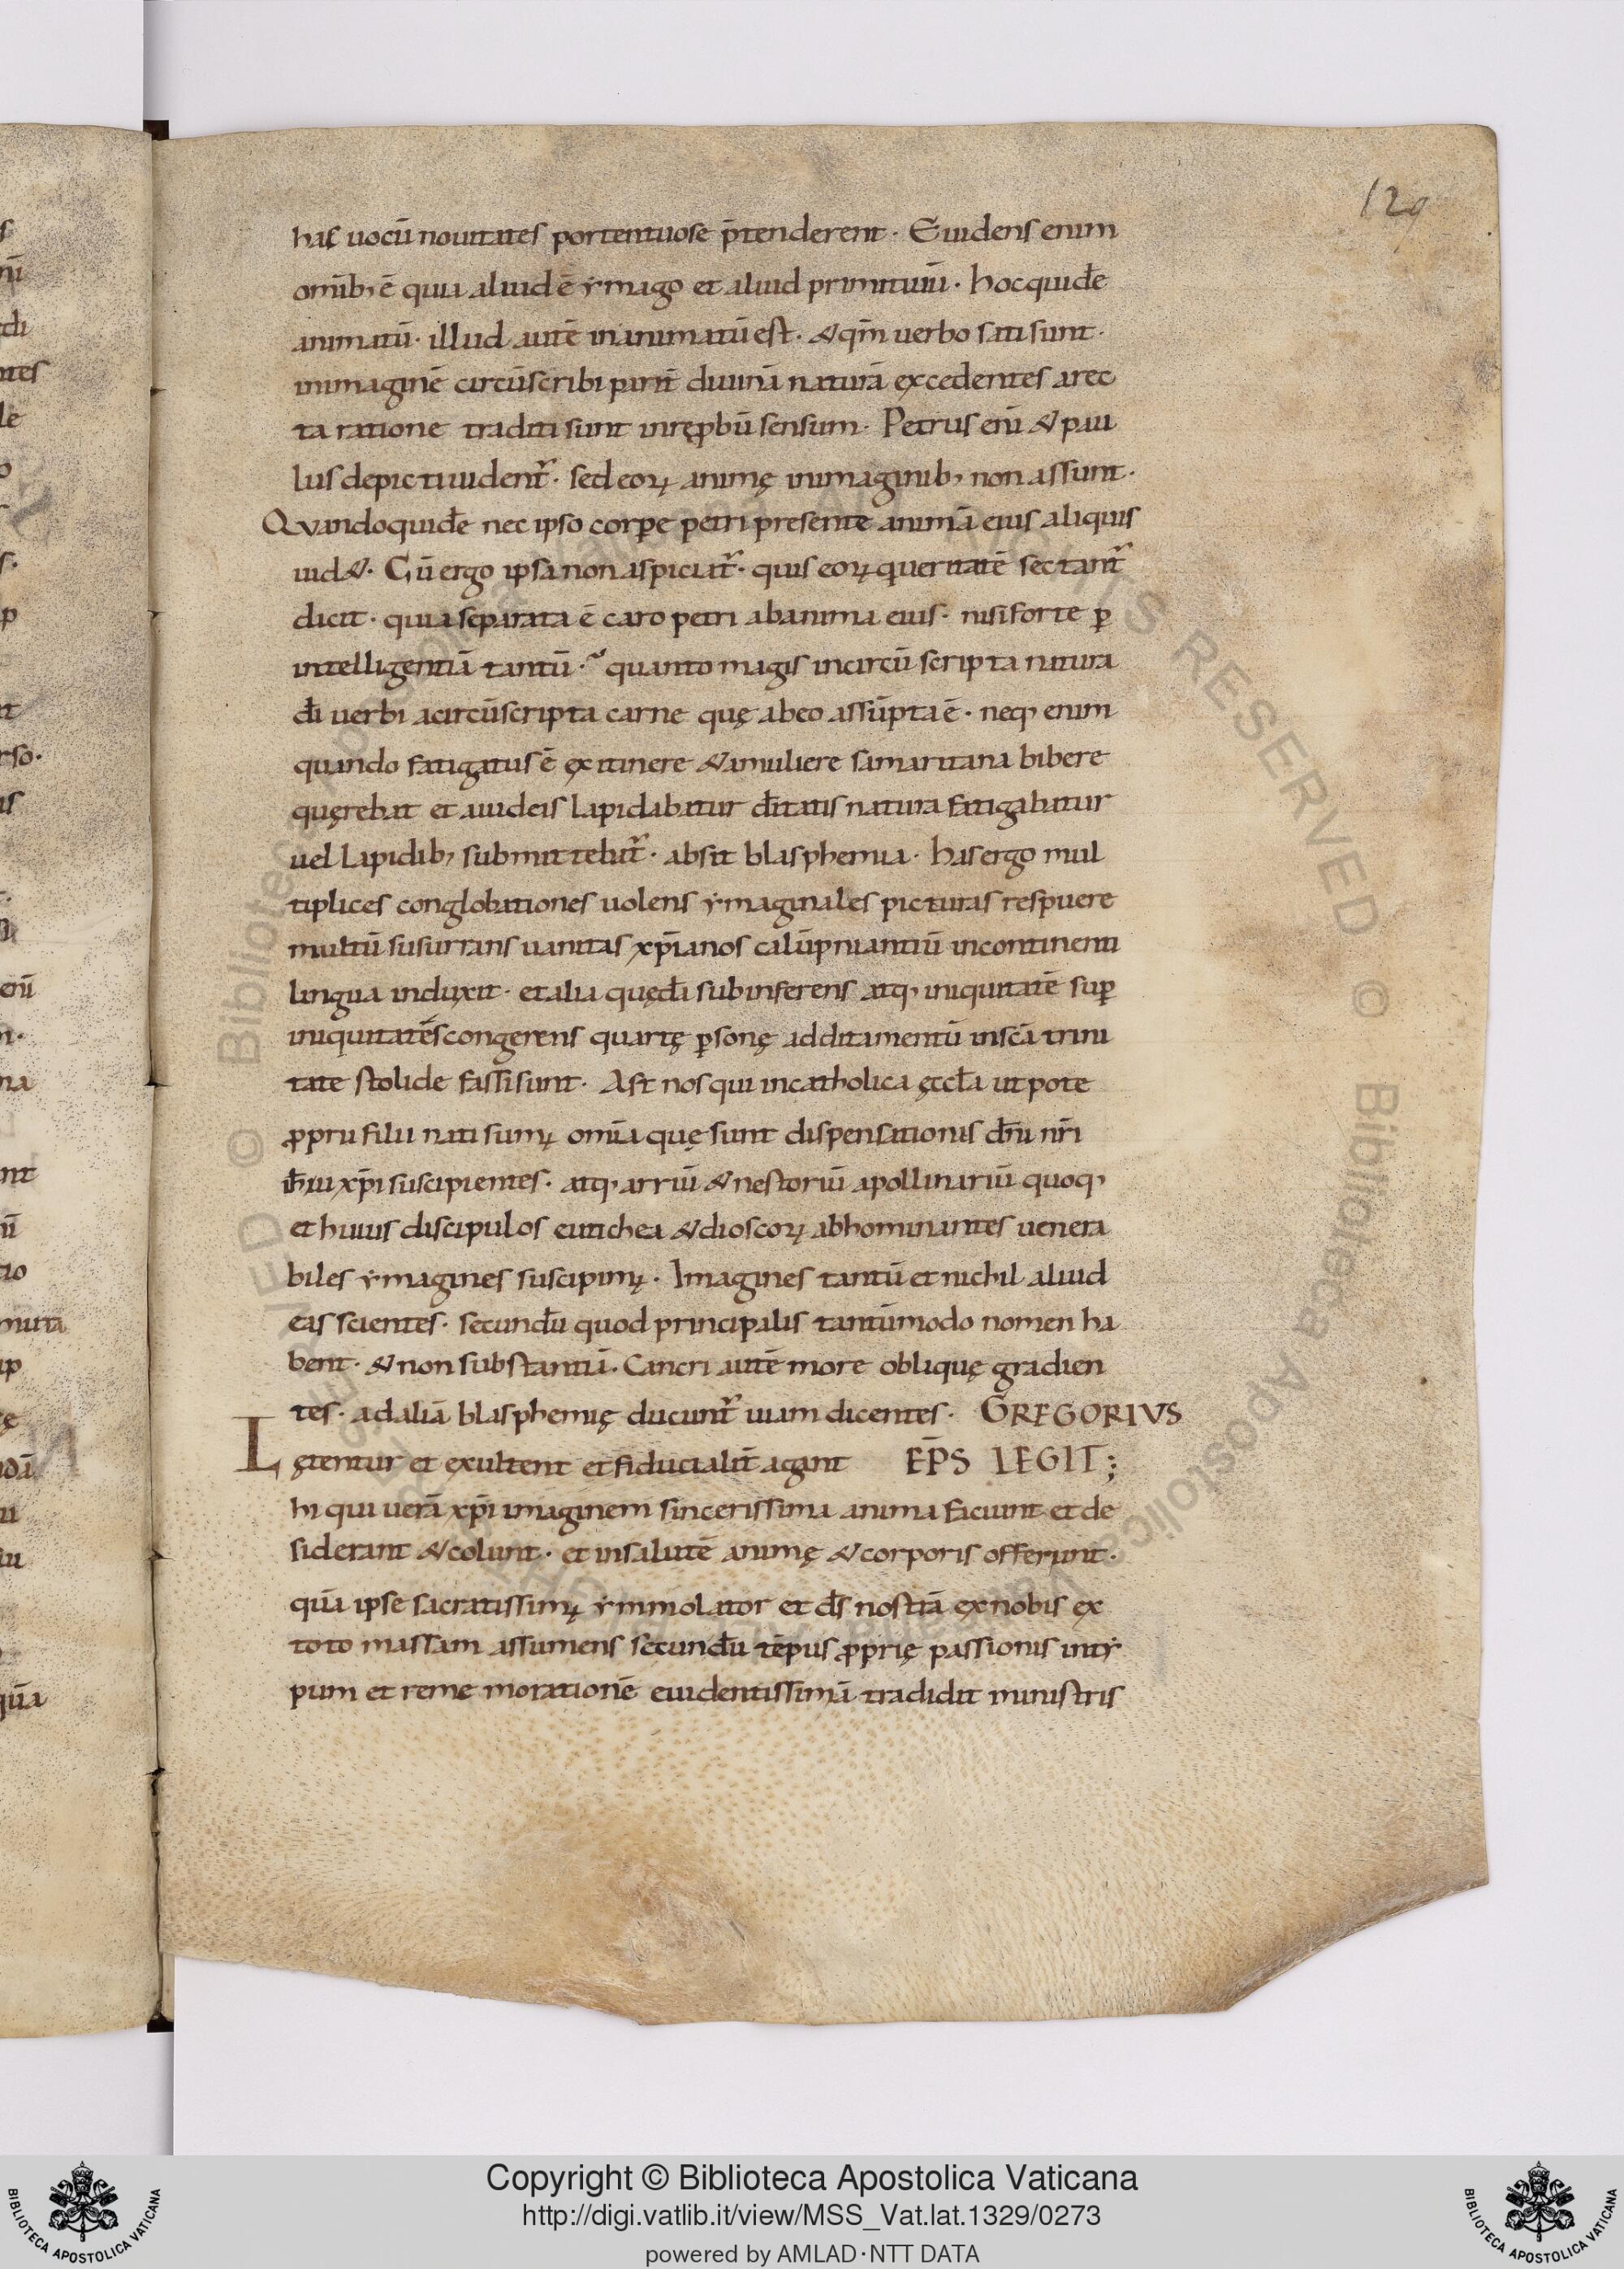 129
has uocū nouitates portentuose p̄tenderent · Euidens enim
omīb; ē quia aliud ē ẏmago et aliud primituiū · hoc quidē
animatū · illud autē inanimatū est · & qm̄ uerbo sati sunt ·
inimaginē circūscribi parit̄ diuinā naturā excedentes arec
ta ratione traditi sunt inrep̱bū sensum · Petrus eni̅ & pau
lus depicti uident᷑ · sed eoꝝ animę inimaginib; non assunt ·
Qvandoquidē nec ipso corꝑe petri presente animā eius aliquis
uid& · Cū ergo ipsa non aspiciat᷑ · quis eoꝝ qui ueritatē sectant᷑
dicit · quia separata ē caro petri ab anima eius · nisi forte ꝑ
intelligentiā tantū · quanto magis incircū scripta natura
dī uerbi a circūscripta carne quę ab eo assūpta ē · neq; enim
quando fatigatus ē ex itinere & a muliere samaritana bibere
quęrebat et a iudeis lapidabatur dītatis natura fatigabatur
uel lapidib; submittebat᷑ · absit blasphemia · has ergo mul
tiplices conglobationes uolens ẏmaginales picturas respuere
multū susurrans uanitas xp̄ianos calūpniantiū incontinenti
lingua induxit · et alia quędā subinferens atq; iniquitatē suꝑ
iniquitatēs congerens quartę ꝑsonę additamentū in scā trini
tate stolide fassi sunt · Ast nos qui in catholica ęccła ut pote
ꝓprii filii nati sumꝰ omīa quę sunt dispensationis dn̄i nr̄i
ih̄u xp̄i suscipientes · atq; arriū & nestoriū apollinariū quoq;
et huius discipulos eutichea & dioscorꝝ abhominantes uenera
biles ẏmagines suscipimꝰ · Imagines tantū et nichil aliud
eas scientes · secundū quod principalis tantūmodo nomen ha
bent · & non substantiā · Cancri autē more obliquę gradien
tes · ad aliā blasphemię ducunt᷑ uiam dicentes · GREGORIVS
Lętentur et exultent et fiducialit̄ agant EP̄S LEGIT;
hi qui uerā xp̄i imaginem sincerissima anima faciunt et de
siderant & colunt · et in salutē animę & corporis offerunt ·
quā ipse sacratissimꝰ ẏmmolator et ds̄ nostrā ex nobis ex
toto massam assumens secundū tēpus ꝓprię passionis in tẏ
pum et reme morationē euidentissimā tradidit ministris
Copyright © Biblioteca Apostolica Vaticana
http://digi.vatlib.it/view/MSS_Vat.lat.1329/0273
powered by AMLAD·NTT DATA